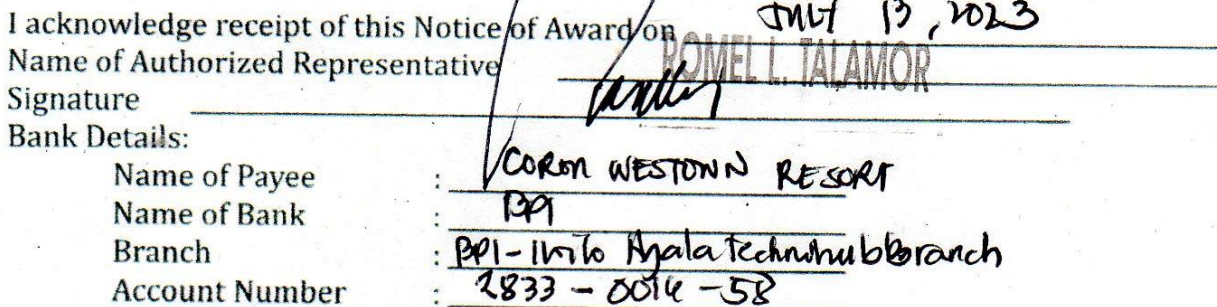 I acknowledge receipt of this Notice of Award on JULY 13, 2023
Name of Authorized Representative ROMEL L. TALAMOR
Signature
Bank Details:
Name of Payee : CORON WESTOWN RESORT
Name of Bank : BPI
Branch : BPI - Iloilo Ayala Technohub Branch
Account Number : 2833 - 0014 - 58